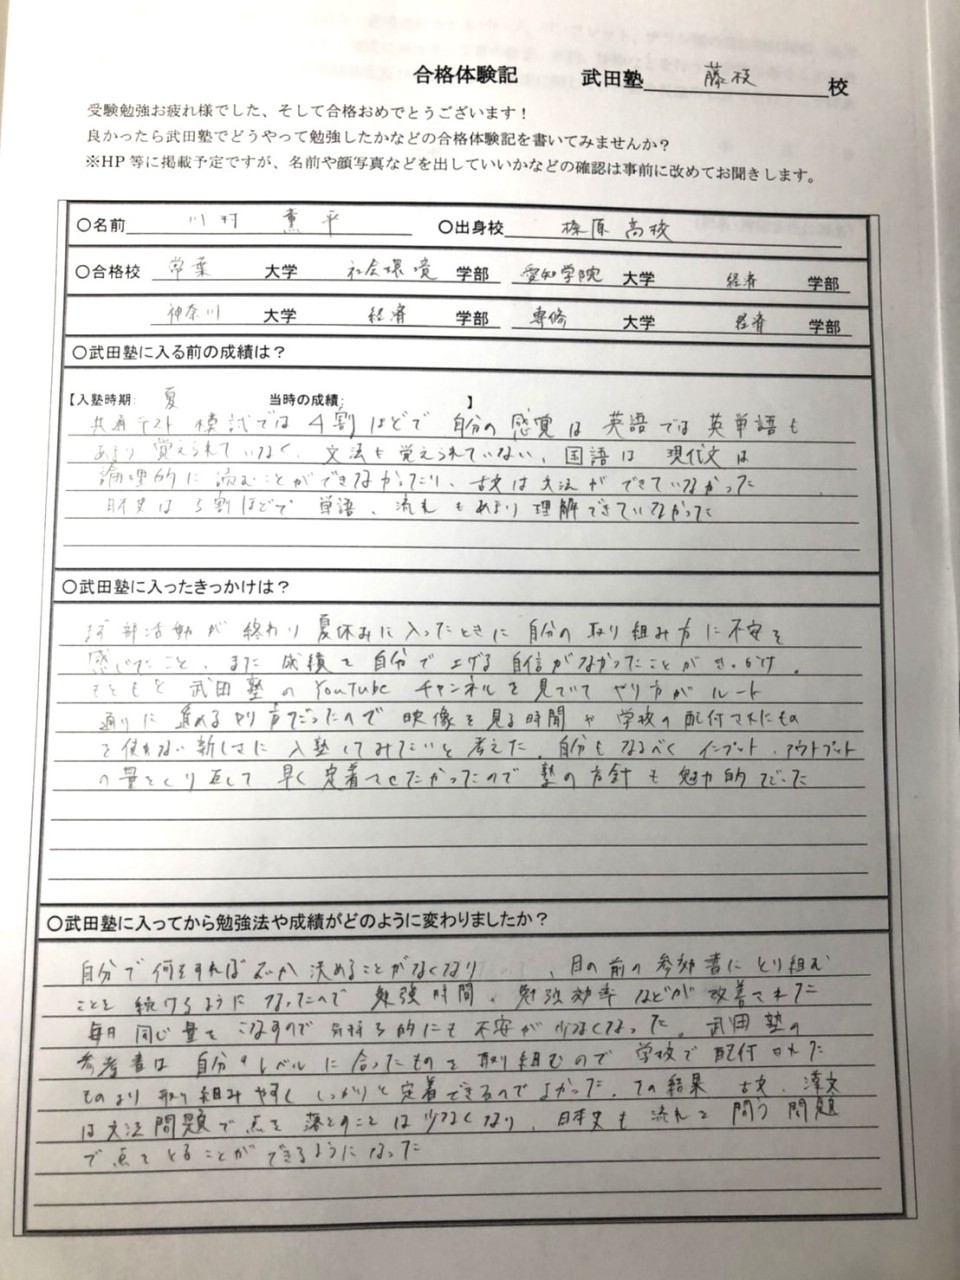 合格体験記 武田塾 藤枝 校
受験勉強お疲れ様でした、そして合格おめでとうございます！
良かったら武田塾でどうやって勉強したかなどの合格体験記を書いてみませんか？
※HP 等に掲載予定ですが、名前や顔写真などを出していいかなどの確認は事前に改めてお聞きします。
〇名前 川村 薫平 〇出身校 榛原高校
〇合格校 常葉 大学 社会環境 学部 愛知学院 大学 経済 学部
神奈川 大学 経済 学部 専修 大学 経済 学部
〇武田塾に入る前の成績は？
【入塾時期: 夏 当時の成績: 】
共通テスト模試では4割ほどで 自分の感覚は 英語では英単語も
あまり覚えられていなく、文法も覚えられていない、国語は 現代文は
論理的に読むことができなかったり、古文は文法ができていなかった
日本史は5割ほどで 単語、流れもあまり理解できていなかった
〇武田塾に入ったきっかけは？
部活動が終わり夏休みに入ったときに自分の取り組み方に不安を
感じたこと、また成績を自分で上げる自信がなかったことがきっかけ、
もともと武田塾のYouTubeチャンネルを見ていてやり方がルート
通りに進めるやり方だったので映像を見る時間や学校の配付されたもの
を使わない新しさに入塾してみたいと考えた、自分もなるべくインプット、アウトプット
の量をくり返して早く定着させたかったので塾の方針も魅力的だった
〇武田塾に入ってから勉強法や成績がどのように変わりましたか？
自分で何をすればいいか決めることがなくなり、目の前の参考書にとり組む
ことを続けるようになったので勉強時間、勉強効率などが改善された
毎日同じ量をこなすので 的にも不安が少なくなった。武田塾の
参考書は自分のレベルに合ったものを取り組むので学校で配付された
ものより取り組みやすくしっかりと定着できるのでよかった、その結果 古文、漢文
は文法問題で点を落とすことは少なくなり、日本史も流れを問う問題
で点をとることができるようになった